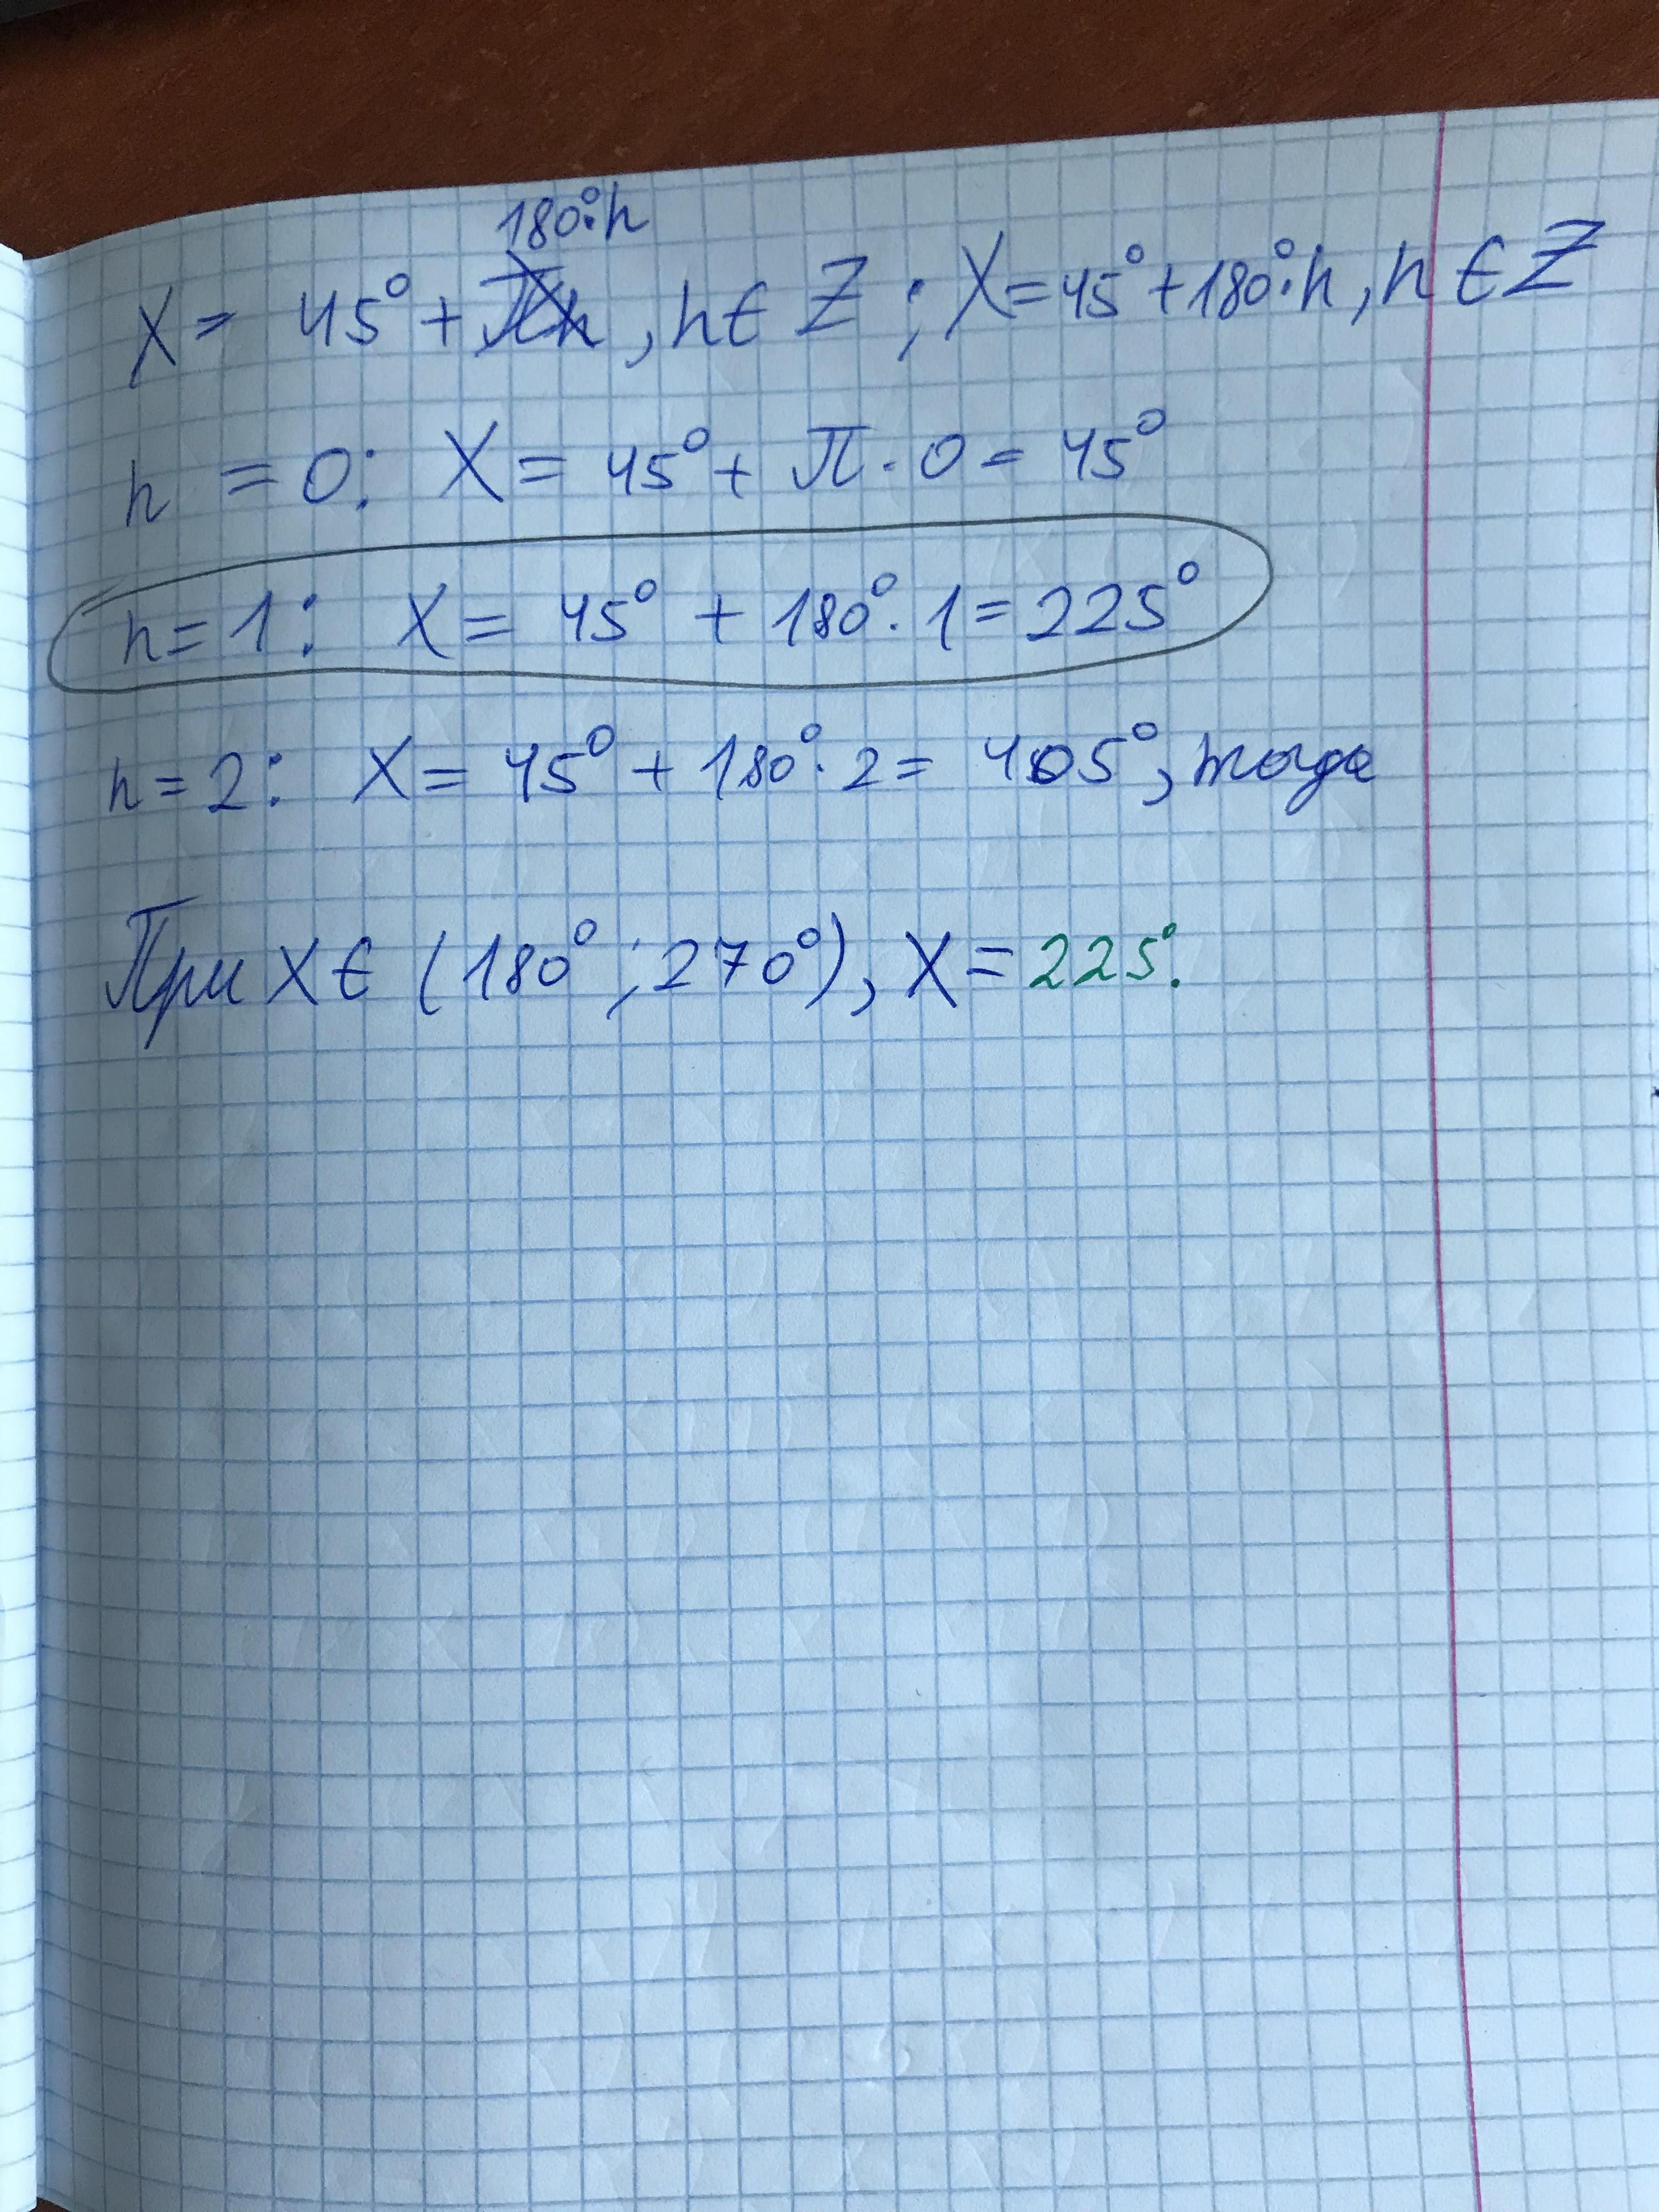 180°·n
X = 45° + πn, n ∈ Z ; X = 45° + 180°·n, n ∈ Z
n = 0: X = 45° + π · 0 = 45°
n = 1: X = 45° + 180° · 1 = 225°
n = 2: X = 45° + 180° · 2 = 405°, тогда
При X ∈ (180° ; 270°), X = 225°.